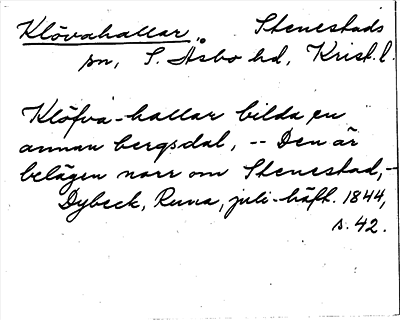 Klövahallar, Stenestads
sn, S. Åsbo hd, Krist. l.
Klöfva-hallar bilda en
annan bergsdal, -- Den är
belägen norr om Stenestad,-
Dybeck, Runa, juli-häft. 1844,
s. 42.